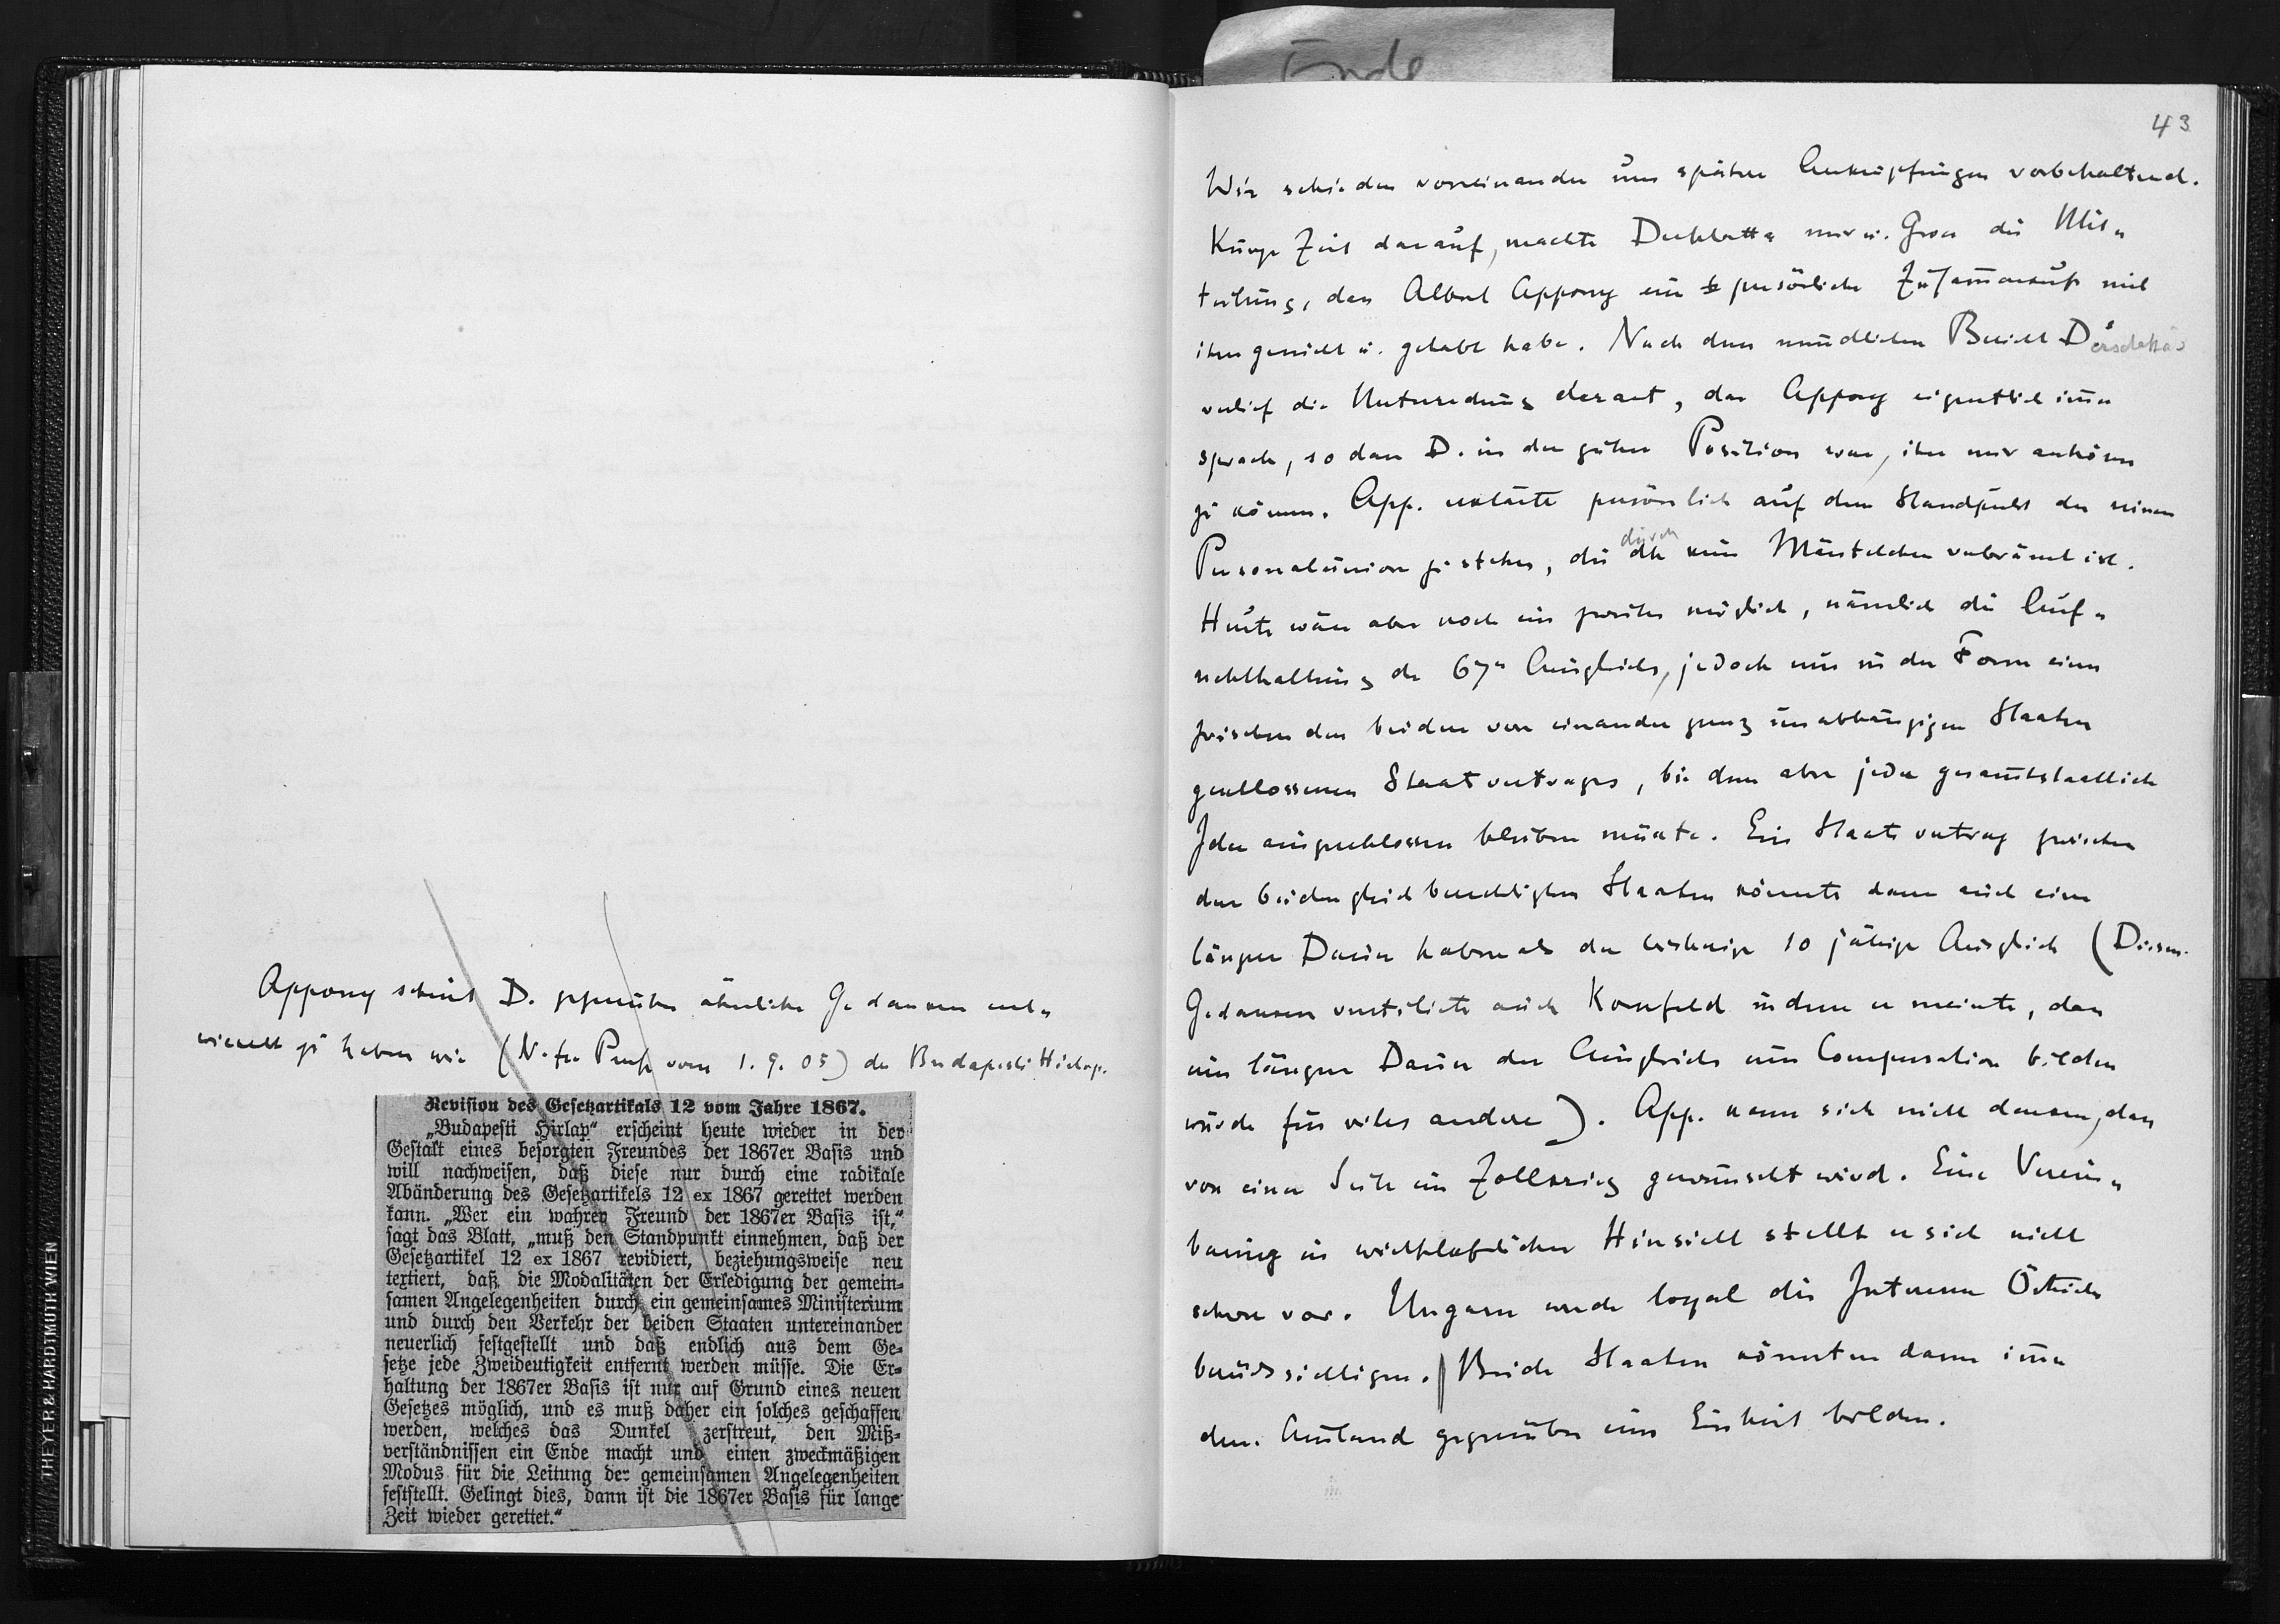 Ende
Appony scheint D. gegenüber ähnliche Gedanken ent-
wickelt zu haben wie (N. fr. Presse vom 1. 9. 05) der Budapesti Hirlap.
Revision des Gesetzartikals 12 vom Jahre 1867.
„Budapesti Hirlap“ erscheint heute wieder in der
Gestalt eines besorgten Freundes der 1867er Basis und
will nachweisen, daß diese nur durch eine radikale
Abänderung des Gesetzartikels 12 ex 1867 gerettet werden
kann. „Wer ein wahrer Freund der 1867er Basis ist,“
sagt das Blatt, „muß den Standpunkt einnehmen, daß der
Gesetzartikel 12 ex 1867 revidiert, beziehungsweise neu
textiert, daß die Modalitäten der Erledigung der gemein-
samen Angelegenheiten durch ein gemeinsames Ministerium
und durch den Verkehr der beiden Staaten untereinander
neuerlich festgestellt und daß endlich aus dem Ge-
setze jede Zweideutigkeit entfernt werden müsse. Die Er-
haltung der 1867er Basis ist nur auf Grund eines neuen
Gesetzes möglich, und es muß daher ein solches geschaffen
werden, welches das Dunkel zerstreut, den Miß-
verständnissen ein Ende macht und einen zweckmäßigen
Modus für die Leitung der gemeinsamen Angelegenheiten
feststellt. Gelingt dies, dann ist die 1867er Basis für lange
Zeit wieder gerettet.“
43
Wir schieden voneinander uns spätere Anknüpfungen vorbehaltend.
Kurze Zeit darauf, machte mir u. die Mit-
teilung, dass Albert Appony eine persönliche Zusammenkunft mit
ihm gewünscht u. gehabt habe. Nach dem mündlichen Bericht
verlief die Unterredung derart, dass Appony eigentlich immer
sprach, so dass D. in der guten Position war, ihn nur anhören
zu können. App. erklärte persönlich auf dem Standpunkt der reinen
Personalunion zu stehen, die durch kein Mäntelchen verbrämt ist.
Heute wäre aber noch ein zweites möglich, nämlich die Auf-
rechthaltung des 67er Ausgleichs, jedoch nur in der Form eines
zwischen den beiden von einander ganz unabhängigen Staaten
geschlossenen Staatvertrages, bei dem aber jede gesamtstaatliche
Idee ausgeschlossen bleiben müsste. Ein Staatsvertrag zwischen
den beiden gleichberechtigten Staaten könnte dann auch eine
längere Dauer haben als der bisherige 10 jährige Ausgleich (Diesen
Gedanken ventilierte auch Kornfeld indem er meinte, dass
eine längere Dauer des Ausgleichs eine Compensation bilden
würde für vieles andere). App. kann sich nicht denken, dass
von einer Seite ein Zollkrieg gewünscht wird. Eine Verein-
barung in wirthschaftlicher Hinsicht stellt er sich nicht
schwer vor. Ungarn werde loyal die Interessen Österreichs
berücksichtigen. Beide Staaten könnten dann immer
dem Ausland gegenüber eine Einheit bilden.